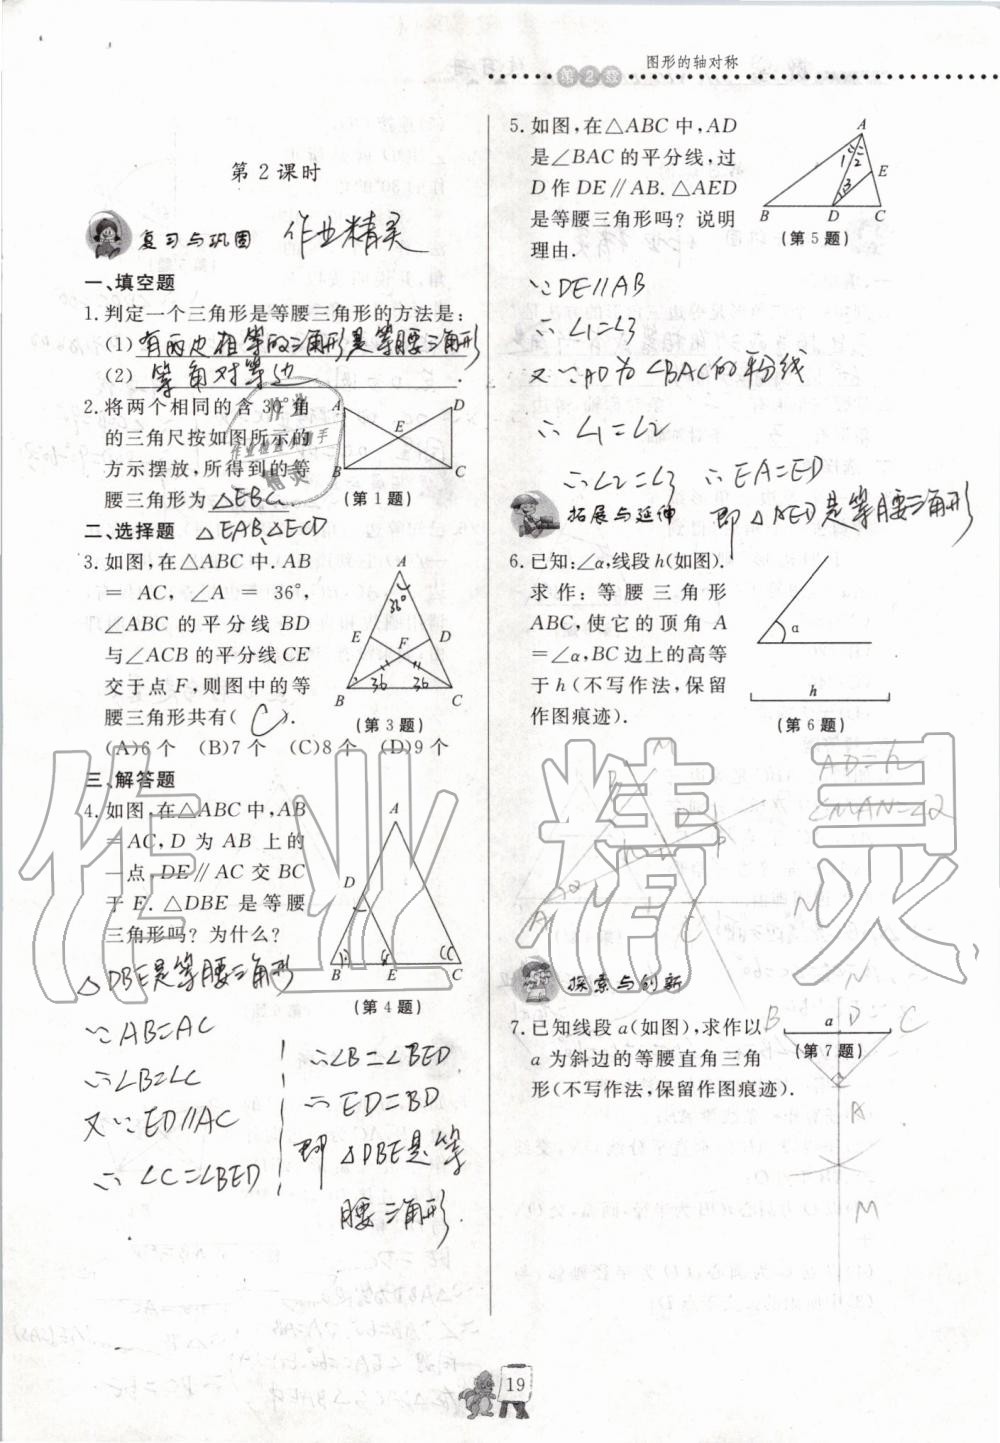 图形的轴对称
第2章
第2课时
复习与巩固 作业精灵
一、填空题
1.判定一个三角形是等腰三角形的方法是:
(1) 有两边相等的三角形是等腰三角形
(2) 等角对等边.
2.将两个相同的含30°角
的三角尺按如图所示的
方示摆放,所得到的等
腰三角形为 △EBC
△EAB、△ECD
A D
E
B C
(第1题)
二、选择题
3.如图,在△ABC中,AB
=AC,∠A=36°,
∠ABC的平分线BD
与∠ACB的平分线CE
交于点F,则图中的等
腰三角形共有( C ).
(A)6个 (B)7个 (C)8个 (D)9个
A
36°
E D
F
36 36
B C
(第3题)
三、解答题
4.如图,在△ABC中,AB
=AC,D为AB上的
一点.DE∥AC交BC
于E.△DBE是等腰
三角形吗?为什么?
A
D
B E C
(第4题)
△DBE是等腰三角形
∵AB=AC
∴∠B=∠C
又∵ED∥AC
∴∠C=∠BED
∴∠B=∠BED
∴ED=BD
即△DBE是等
腰三角形.
5.如图,在△ABC中,AD
是∠BAC的平分线,过
D作DE∥AB.△AED
是等腰三角形吗?说明
理由.
A
1 2
E
3
B D C
(第5题)
∵DE∥AB
∴∠1=∠3
又∵AD为∠BAC的平分线
∴∠1=∠2
∴∠2=∠3 ∴EA=ED
即△AED是等腰三角形
拓展与延伸
6.已知:∠α,线段h(如图).
求作:等腰三角形
ABC,使它的顶角A
=∠α,BC边上的高等
于h(不写作法,保留
作图痕迹).
α
h
(第6题)
AD=h
∠MAN=∠α
M
B
D
P
A
C
N
探索与创新
7.已知线段a(如图),求作以
a为斜边的等腰直角三角
形(不写作法,保留作图痕迹).
N
B a D C
(第7题)
A
M
作业精灵
19